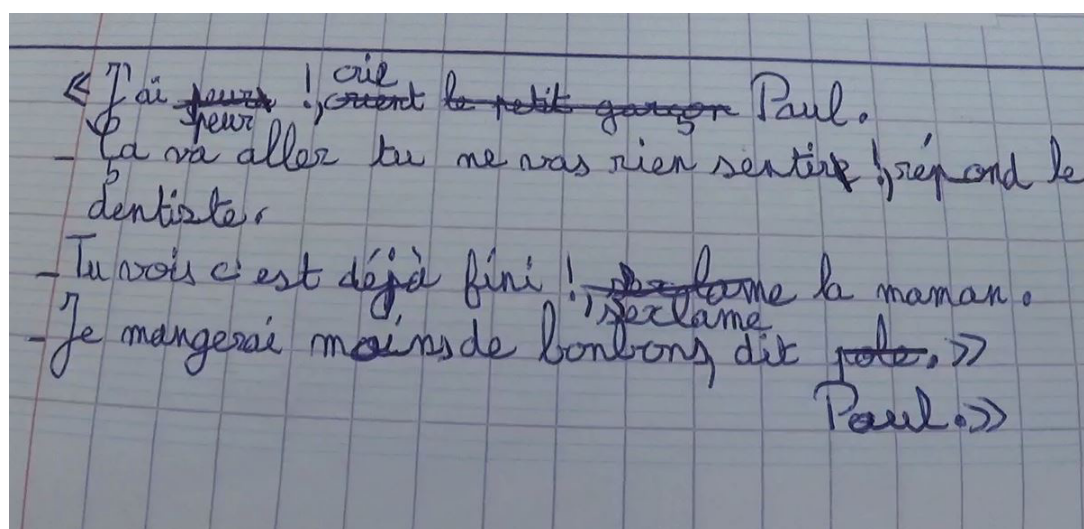 « J'ai peur !, crie Paul.
- Ça va aller tu ne vas rien sentir !, répond le
dentiste.
- Tu vois c'est déjà fini !, s'exclame la maman.
- Je mangerai moins de bonbons, dit
Paul. »